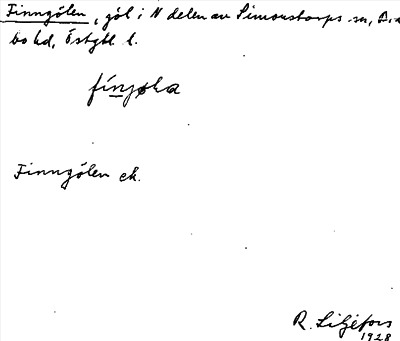 Finngölen, göl i N delen av Simonstorps sn,
bo hd, Östgtl l.
Finngölen ek.
R. Liljefors
1928